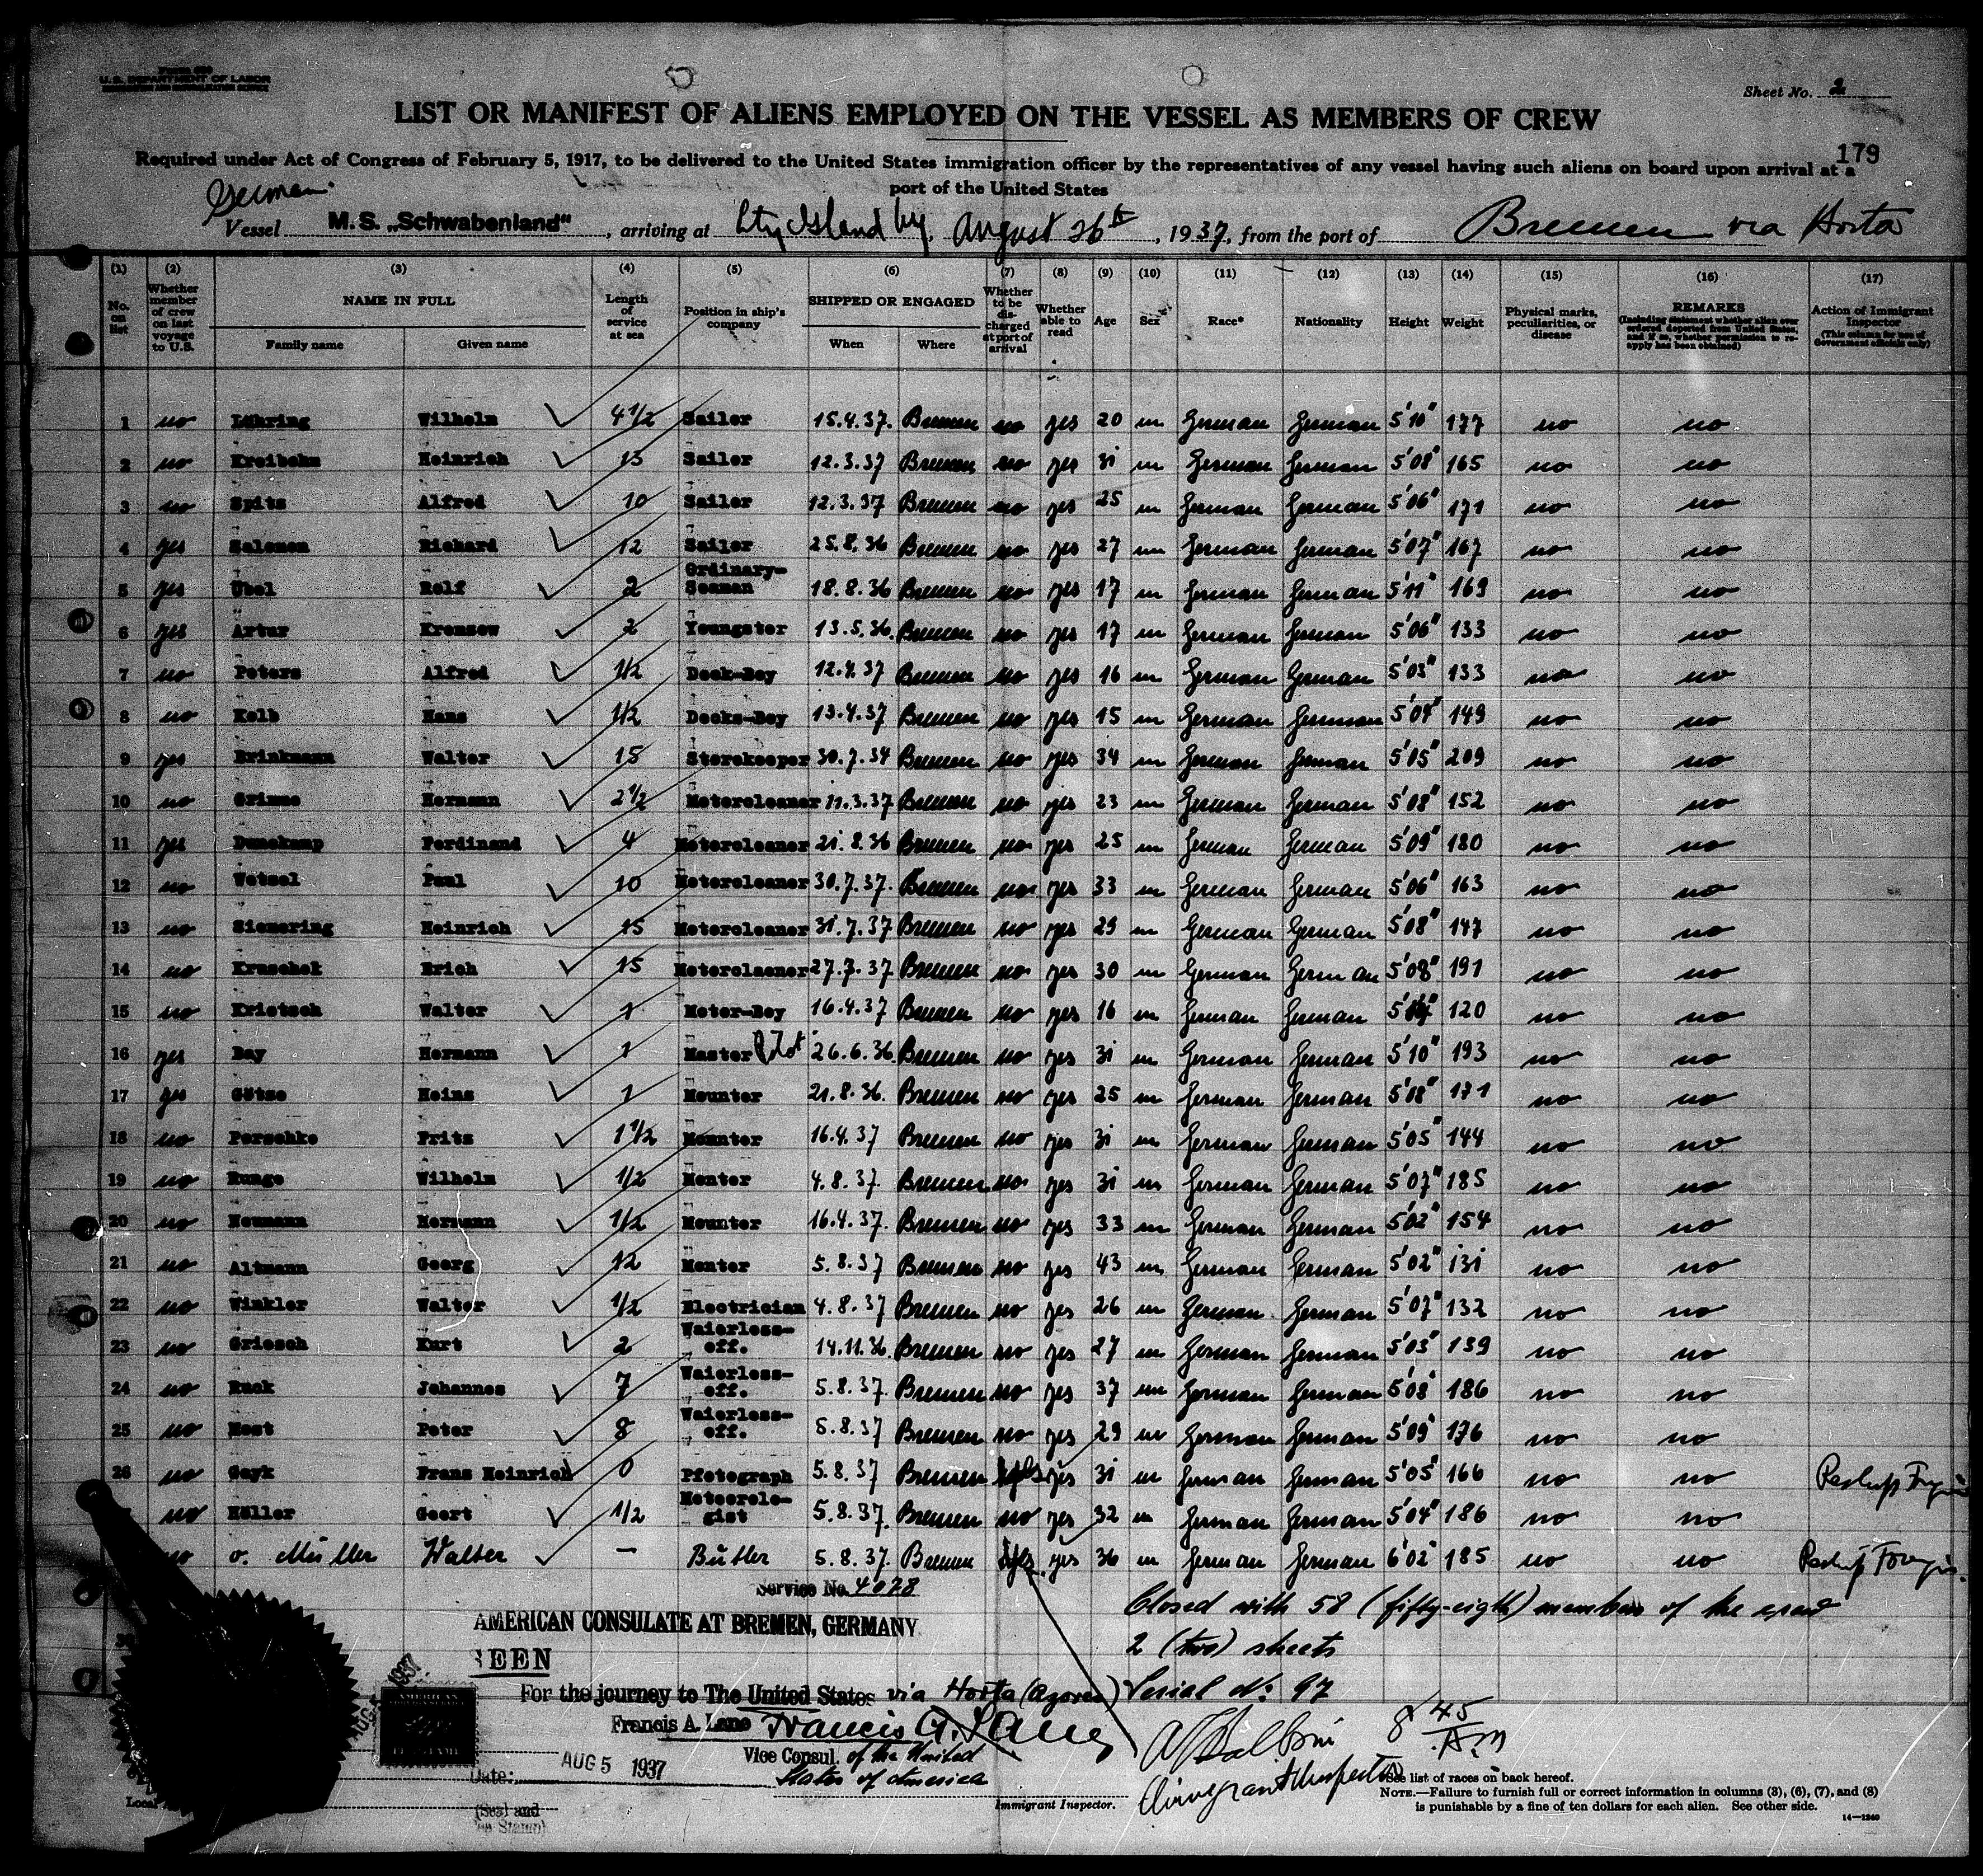 U.S. DEPARTMENT OF LABOR
Sheet No. 2
LIST OR MANIFEST OF ALIENS EMPLOYED ON THE VESSEL AS MEMBERS OF CREW
179
Required under Act of Congress of February 5, 1917, to be delivered to the United States immigration officer by the representatives of any vessel having such aliens on board upon arrival at a
port of the United States
German
Vessel M.S. „Schwabenland", arriving at City Island Ny, August 26th, 1937, from the port of Bremen via Horta
(1) (2) (3) (4) (5) (6) (7) (8) (9) (10) (11) (12) (13) (14) (15) (16) (17)
No. on list Whether member of crew on last voyage to U.S. NAME IN FULL Family name Given name Length of service at sea Position in ship's company SHIPPED OR ENGAGED When Where Whether to be discharged at port of arrival Whether able to read Age Sex Race* Nationality Height Weight Physical marks, peculiarities, or disease REMARKS (Including statement whether alien ever ordered deported from United States, and if so, whether permission to reapply has been obtained) Action of Immigrant Inspector (This column for use of Government officials only)
1 no Lühring Wilhelm 4 1/2 Sailor 15.4.37. Bremen no yes 20 m German German 5'10" 177 no no
2 no Kreibohm Heinrich 13 Sailor 12.3.37 Bremen no yes 31 m German German 5'08" 165 no no
3 no Spitz Alfred 10 Sailor 12.3.37 Bremen no yes 25 m German German 5'06" 171 no no
4 yes Salomon Richard 12 Sailor 25.8.36 Bremen no yes 27 m German German 5'07" 167 no no
5 yes Übel Rolf 2 Ordinary-Seaman 18.8.36 Bremen no yes 17 m German German 5'11" 169 no no
6 yes Artur Kremzow 2 Youngster 13.5.36. Bremen no yes 17 m German German 5'06" 133 no no
7 no Peters Alfred 1/2 Deck-Boy 12.4.37 Bremen no yes 16 m German German 5'03" 133 no no
8 no Kolb Hans 1/2 Decks-Boy 13.4.37 Bremen no yes 15 m German German 5'04" 149 no no
9 yes Brinkmann Walter 15 Storekeeper 30.7.34 Bremen no yes 34 m German German 5'05" 209 no no
10 no Grimme Hermann 2 1/2 Motorcleaner 11.3.37 Bremen no yes 23 m German German 5'08" 152 no no
11 yes Dunekamp Ferdinand 4 Motorcleaner 21.8.36 Bremen no yes 25 m German German 5'09" 180 no no
12 no Wetzel Paul 10 Motorcleaner 30.7.37. Bremen no yes 33 m German German 5'06" 163 no no
13 no Siemering Heinrich 15 Motorcleaner 31.7.37 Bremen no yes 29 m German German 5'08" 147 no no
14 no Kruschek Erich 15 Motorclaener 27.7.37 Bremen no yes 30 m German German 5'08" 191 no no
15 no Krietsch Walter 1 Motor-Boy 16.4.37 Bremen no yes 16 m German German 120 no no
16 yes Bay Hermann 1 Master Pilot 26.6.36. Bremen no yes 31 m German German 5'10" 193 no no
17 yes Götze Heinz 1 Mounter 21.8.36. Bremen no yes 25 m German German 5'08" 171 no no
18 no Perschke Fritz 1 1/2 Mounter 16.4.37 Bremen no yes 31 m German German 5'05" 144 no no
19 no Runge Wilhelm 1/2 Monter 4.8.37. Bremen no yes 31 m German German 5'07" 185 no no
20 no Neumann Hermann 1/2 Mounter 16.4.37. Bremen no yes 33 m German German 5'02" 154 no no
21 no Altmann Georg 12 Monter 5.8.37 Bremen no yes 43 m German German 5'02" 131 no no
22 no Winkler Walter 1/2 Electrician 4.8.37 Bremen no yes 26 m German German 5'07" 132 no no
23 no Griesch Kurt 2 Waierless-off. 14.11.36. Bremen no yes 27 m German German 5'03" 139 no no
24 no Ruck Johannes 7 Waierless-off. 5.8.37. Bremen no yes 37 m German German 5'08" 186 no no
25 no Host Peter 8 Waierless-off. 5.8.37 Bremen no yes 29 m German German 5'09" 176 no no
26 no Gayk Franz Heinrich 0 Pfotograph 5.8.37 Bremen yes yes 31 m German German 5'05" 166 no no
no Höller Geert 1/2 Meteorologist 5.8.37. Bremen no yes 32 m German German 5'04" 186 no no
no v. Müller Walter — Butler 5.8.37. Bremen yes yes 36 m German German 6'02" 185 no no
Service No. 4078
Closed with 58 (fifty-eigth) members of the crew
AMERICAN CONSULATE AT BREMEN, GERMANY
2 (two) sheets
SEEN
For the journey to The United States via Horta (Azores)
Serial No: 97
Francis A. Lane Francis A. Lane
8 45 A.M
Vice Consul of the United States of America
Date: AUG 5 1937
Immigrant Inspector
(Seal and
Stamp)
Immigrant Inspector.
*See list of races on back hereof.
NOTE.—Failure to furnish full or correct information in columns (3), (6), (7), and (8)
is punishable by a fine of ten dollars for each alien. See other side.
14—1240